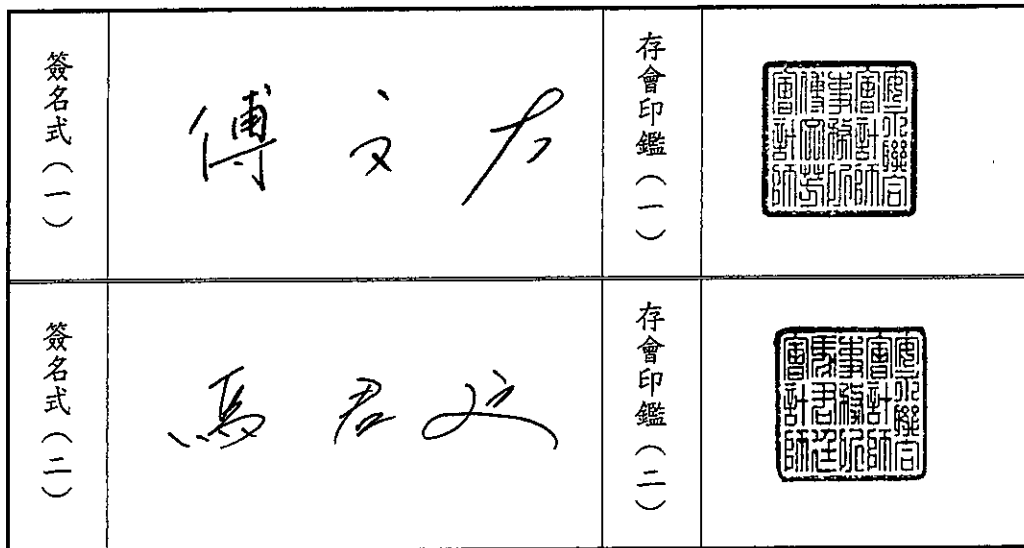 簽名式(一)
傅文芳
存會印鑑(一)
安永聯合
會計師
事務所
傅文芳
會計師
簽名式(二)
馬君廷
存會印鑑(二)
安永聯合
會計師
事務所
馬君廷
會計師